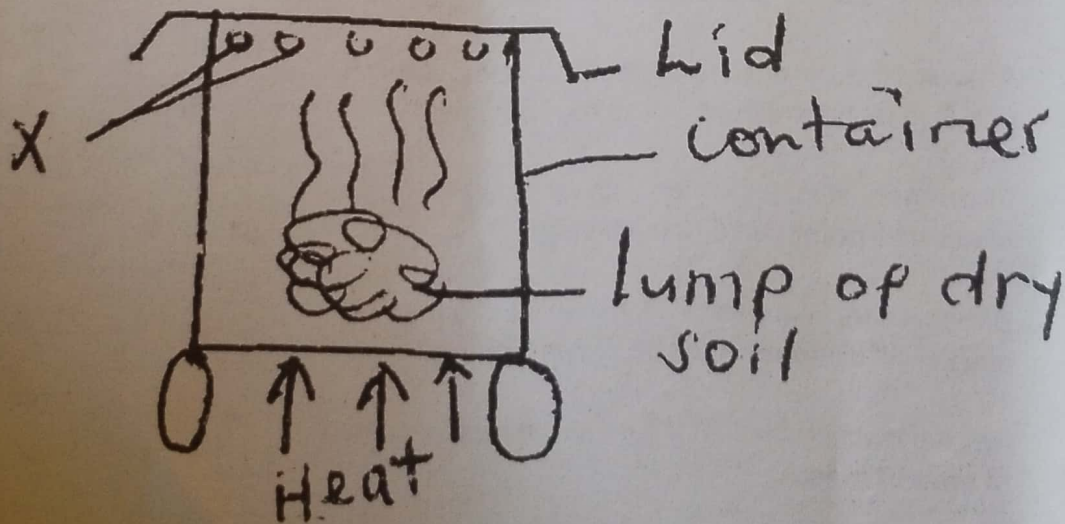 Lid
container
X
lump of dry
soil
Heat